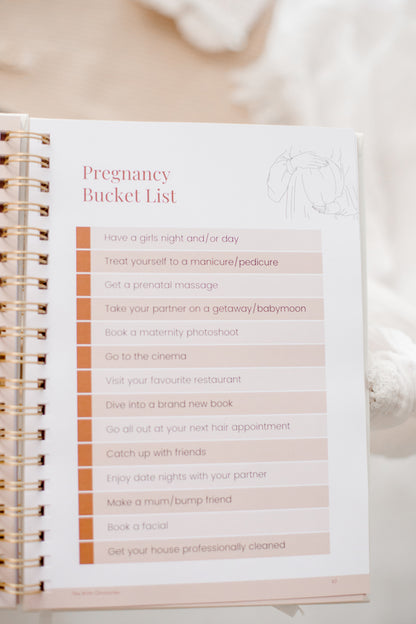 Pregnancy
Bucket List
Have a girls night and/or day
Treat yourself to a manicure/pedicure
Get a prenatal massage
Take your partner on a getaway/babymoon
Book a maternity photoshoot
Go to the cinema
Visit your favourite restaurant
Dive into a brand new book
Go all out at your next hair appointment
Catch up with friends
Enjoy date nights with your partner
Make a mum/bump friend
Book a facial
Get your house professionally cleaned